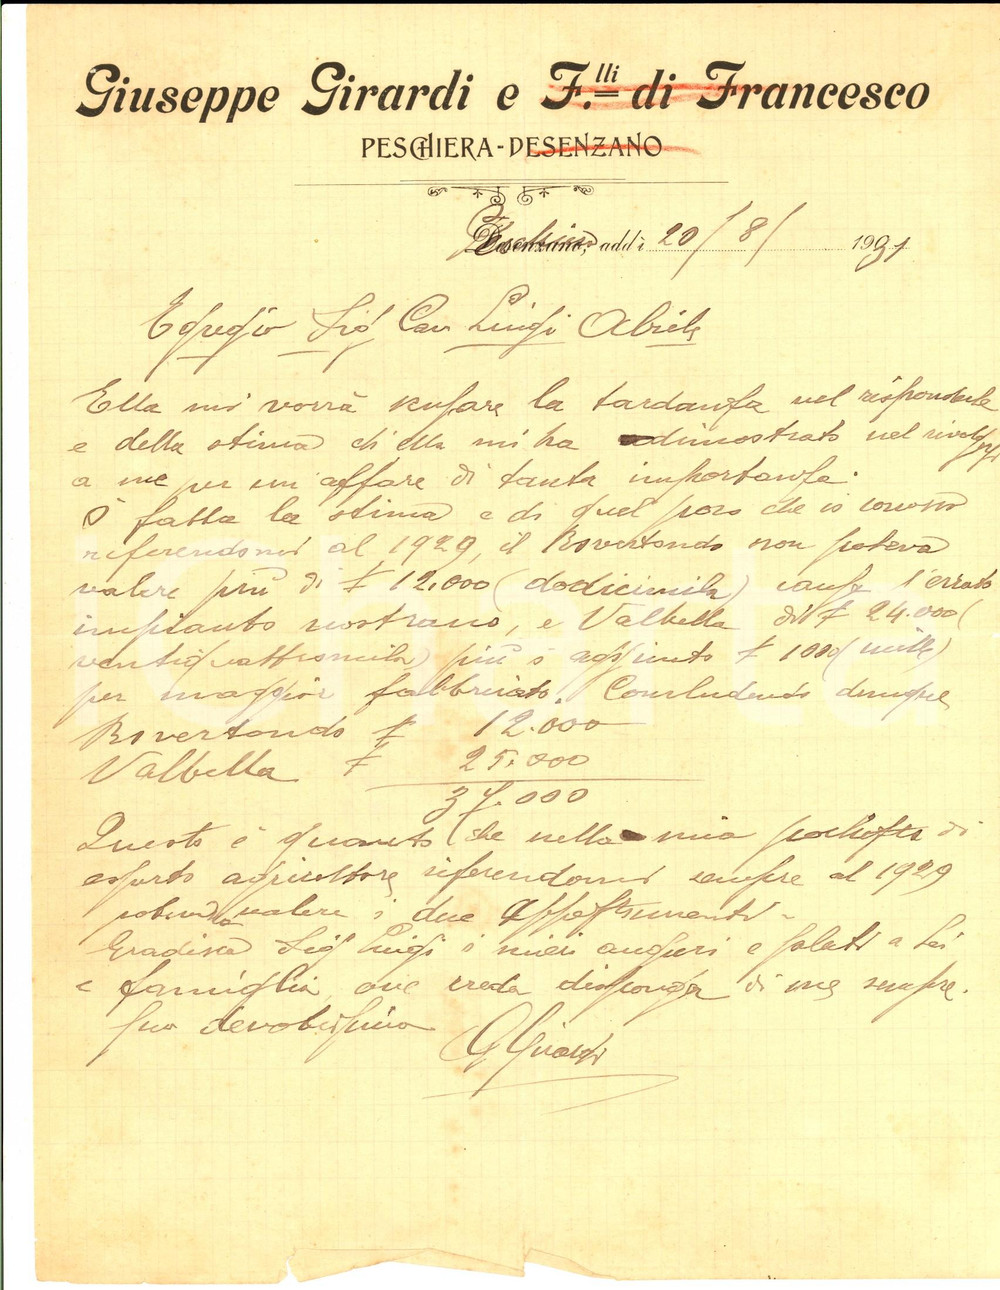 Giuseppe Girardi e F.lli di Francesco
PESCHIERA-DESENZANO
Desenzano, addì 20/8/1931
Egregio Sig Cav Luigi
Ella mi vorrà scusare la tardanza nel rispondere
e della stima che ella mi ha dimostrato nel rivolgersi
a me per un affare di tanta importanza.
O fatta la stima e di quel poco che io conosco
riferendomi al 1929, il Rovertondo non poteva
valere più di £ 12.000 (dodicimila) causa l'errato
impianto nostrano, e Valbella di £ 24.000 (
ventiquattromila) più o aggiunto £ 1000 (mille)
per maggior fabbricato. Concludendo dunque
Rovertondo £ 12.000
Valbella £ 25.000
37.000
Questo è quanto che nella mia
esperto agricoltore riferendomi sempre al 1929
valere i due appezzamenti-
Gradisca Sig Luigi i miei auguri e saluti a Lei
e famiglia, ove creda disponga di me sempre.
Suo devotissimo
G Girardi
iCharta